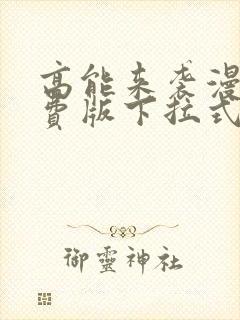 高能来袭漫
费版下拉式
御靈神社